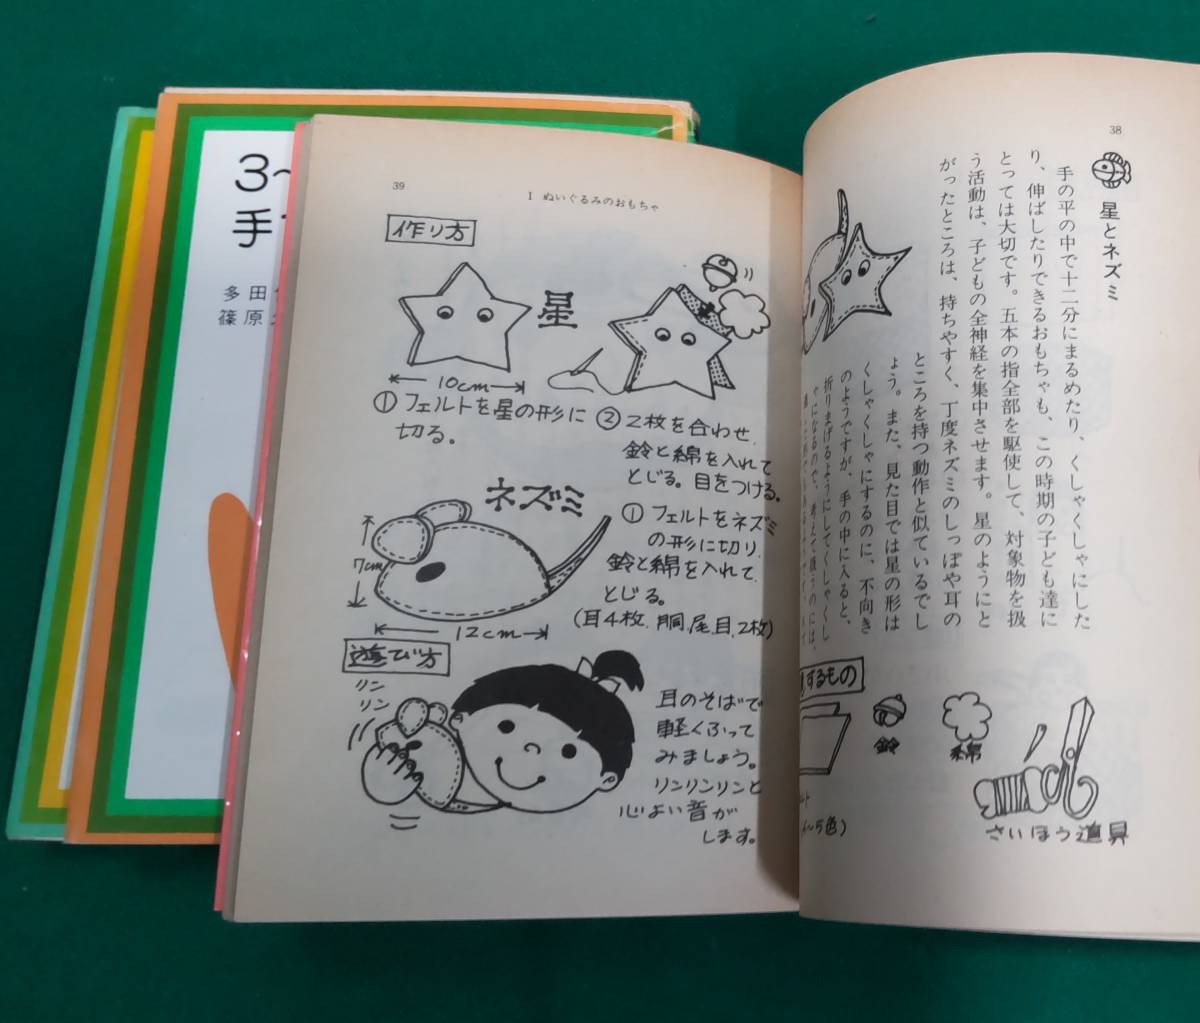 38
星とネズミ
手の平の中で十二分にまるめたり、くしゃくしゃにした
り、伸ばしたりできるおもちゃも、この時期の子ども達に
とっては大切です。五本の指全部を駆使して、対象物を扱
う活動は、子どもの全神経を集中させます。星のようにと
がったところは、持ちやすく、丁度ネズミのしっぽや耳の
ところを持つ動作と似ているでし
ょう。また、見た目では星の形は
くしゃくしゃにするのに、不向き
のようですが、手の中に入ると、
折りまげるようにしてくしゃくし
ゃになるのや、
するもの
鈴
綿
さいほう道具
〜5色)
39
I ぬいぐるみのおもちゃ
作り方
星
10cm
① フェルトを星の形に
切る。
② 2枚を合わせ、
鈴と綿を入れて
とじる。目をつける。
ネズミ
7cm
12cm
① フェルトをネズミ
の形に切り、
鈴と綿を入れて、
とじる。
(耳4枚、胴、尾、目、2枚)
遊び方
リン
リン
耳のそばで
軽くふって
みましょう。
リンリンリンと
心よい音が
します。
3〜
手
多田
篠原